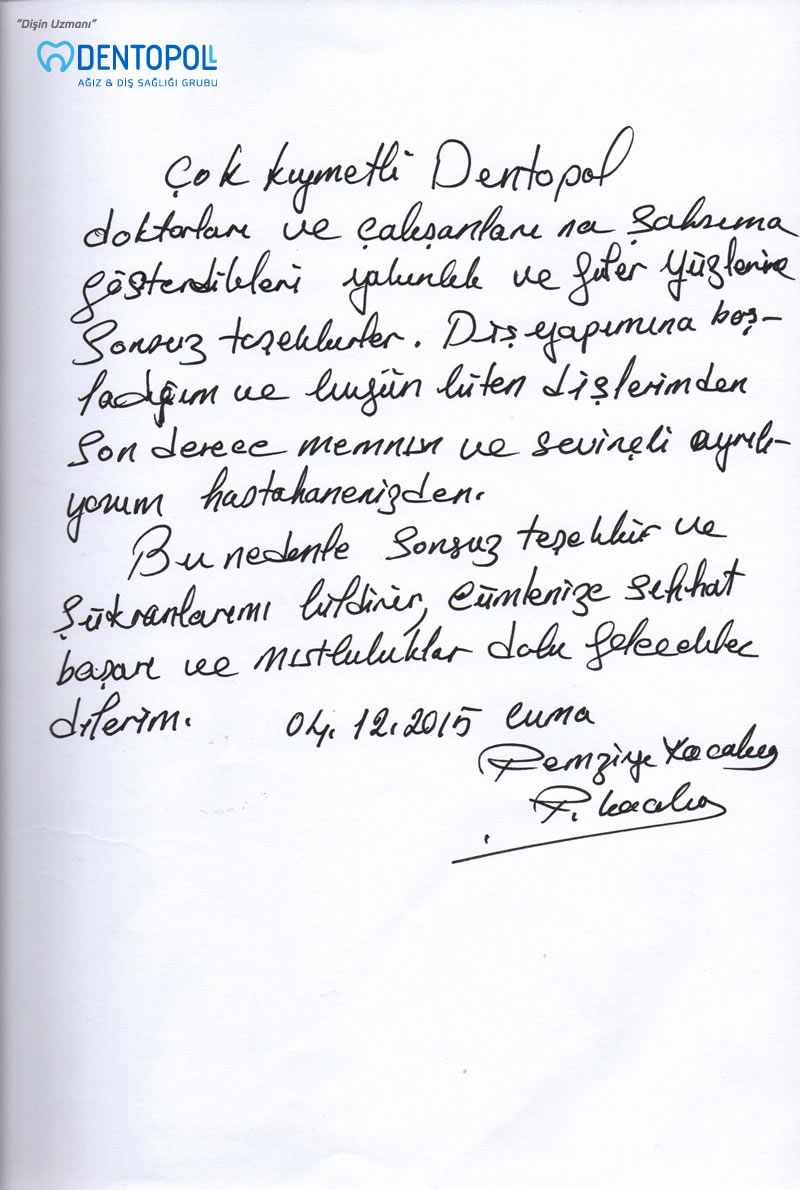 "Dişin Uzmanı"
DENTOPOLL
AĞIZ & DİŞ SAĞLIĞI GRUBU
Çok kıymetli Dentopol
doktorları ve çalışanları na Şahsıma
gösterdikleri yakınlık ve güler yüzlerine
Sonsuz teşekkürler. Diş yapımına baş-
ladığım ve bugün biten dişlerimden
Son derece memnun ve sevinçli ayrılı-
yorum hastahanenizden.
Bu nedenle Sonsuz teşekkür ve
Şükranlarımı bildirir, Cümlenize Sıhhat
başarı ve mutluluklar dolu gelecekler
dilerim. 04.12.2015 Cuma
Remziye
R.